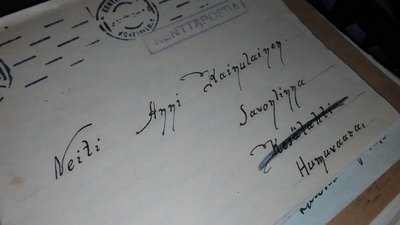 KENTTÄPOSTIA
Neiti Anni Kainulainen.
Savonlinna
Humuvaara.